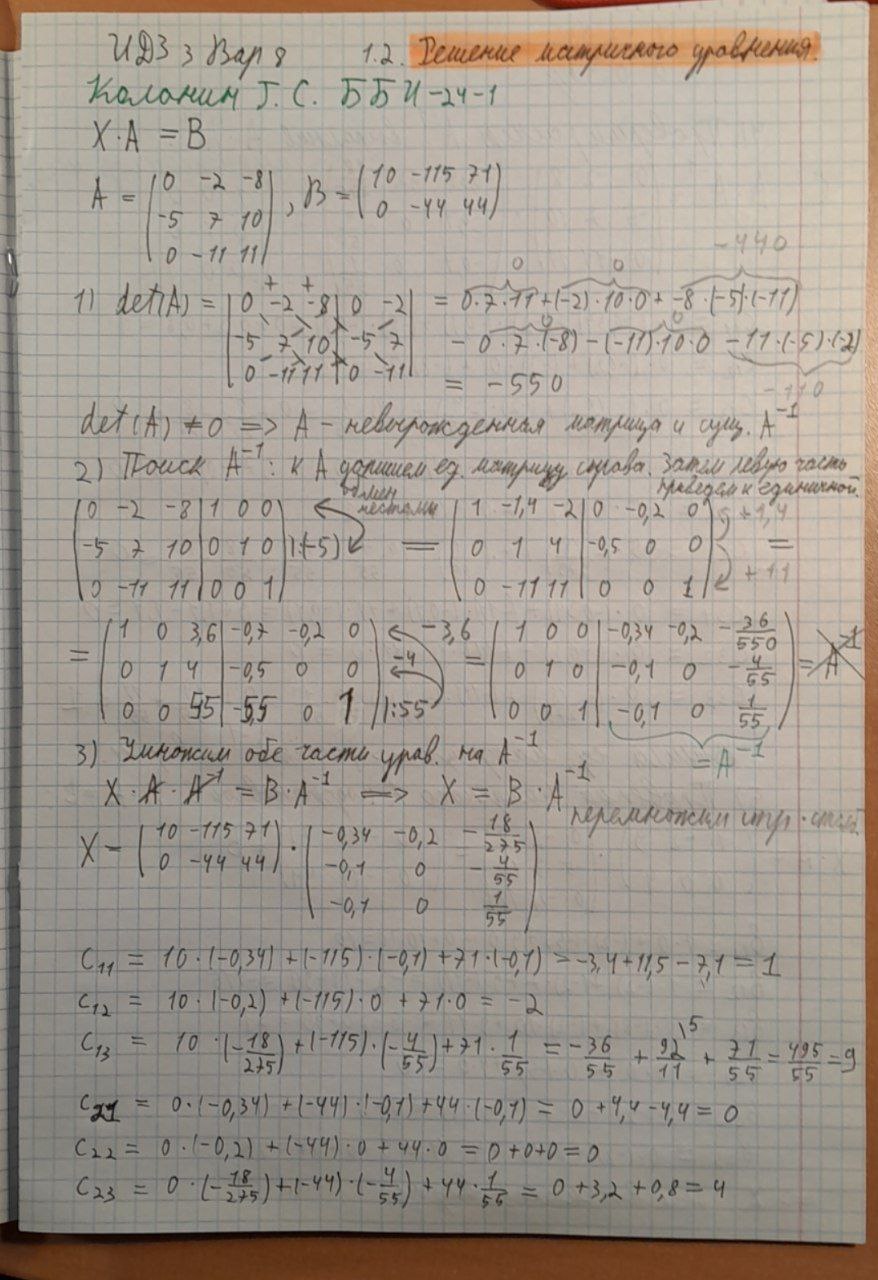 ИДЗ 3 Вар 8 1.2. Решение матричного уравнения.
Каланин Г. С. ББИ-24-1
X·A = B
A = (0 -2 -8; -5 7 10; 0 -11 11), B = (10 -115 71; 0 -44 44)
1) det(A) = |0 -2 -8| 0 -2; -5 7 10| -5 7; 0 -11 11| 0 -11| = 0·7·11+(-2)·10·0+ -8·(-5)·(-11)
+ + 0 0 -440
- 0·7·(-8) - (-11)·10·0 - 11·(-5)·(-2)
0 0 -110
= -550
det(A) ≠ 0 => A - невырожденная матрица и сущ. A^-1
2) Поиск A^-1: к A допишем ед. матрицу справа. Затем левую часть
приведем к единичной.
(0 -2 -8 | 1 0 0; -5 7 10 | 0 1 0; 0 -11 11 | 0 0 1) |:(-5) обмен местами = (1 -1,4 -2 | 0 -0,2 0; 0 1 4 | -0,5 0 0; 0 -11 11 | 0 0 1) +1,4 +11 =
= (1 0 3,6 | -0,7 -0,2 0; 0 1 4 | -0,5 0 0; 0 0 55 | -5,5 0 1) |:55 -3,6 -4 = (1 0 0 | -0,34 -0,2 -36/550; 0 1 0 | -0,1 0 -4/55; 0 0 1 | -0,1 0 1/55) = A^-1
= A^-1
3) Умножим обе части урав. на A^-1
X·A·A^-1 = B·A^-1 => X = B·A^-1
перемножим стр·столб
X = (10 -115 71; 0 -44 44) · (-0,34 -0,2 -18/275; -0,1 0 -4/55; -0,1 0 1/55)
C11 = 10·(-0,34)+(-115)·(-0,1)+71·(-0,1) = -3,4+11,5-7,1 = 1
C12 = 10·(-0,2)+(-115)·0+71·0 = -2
C13 = 10·(-18/275)+(-115)·(-4/55)+71·1/55 = -36/55 + 92/11 \5 + 71/55 = 495/55 = 9
C21 = 0·(-0,34)+(-44)·(-0,1)+44·(-0,1) = 0+4,4-4,4 = 0
C22 = 0·(-0,2)+(-44)·0+44·0 = 0+0+0 = 0
C23 = 0·(-18/275)+(-44)·(-4/55)+44·1/55 = 0+3,2+0,8 = 4